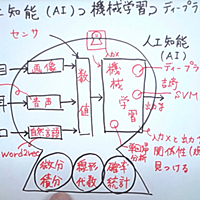 工知能(AI)⊃機械学習⊃ディープラ
センサ
画像
音声
自然言語
word2vec
数値
機械学習
人工知能
(AI)
ディープラ
SVM
出力
入力Xと出力
関係性
見つける
微分
積分
線形
代数
確率
統計